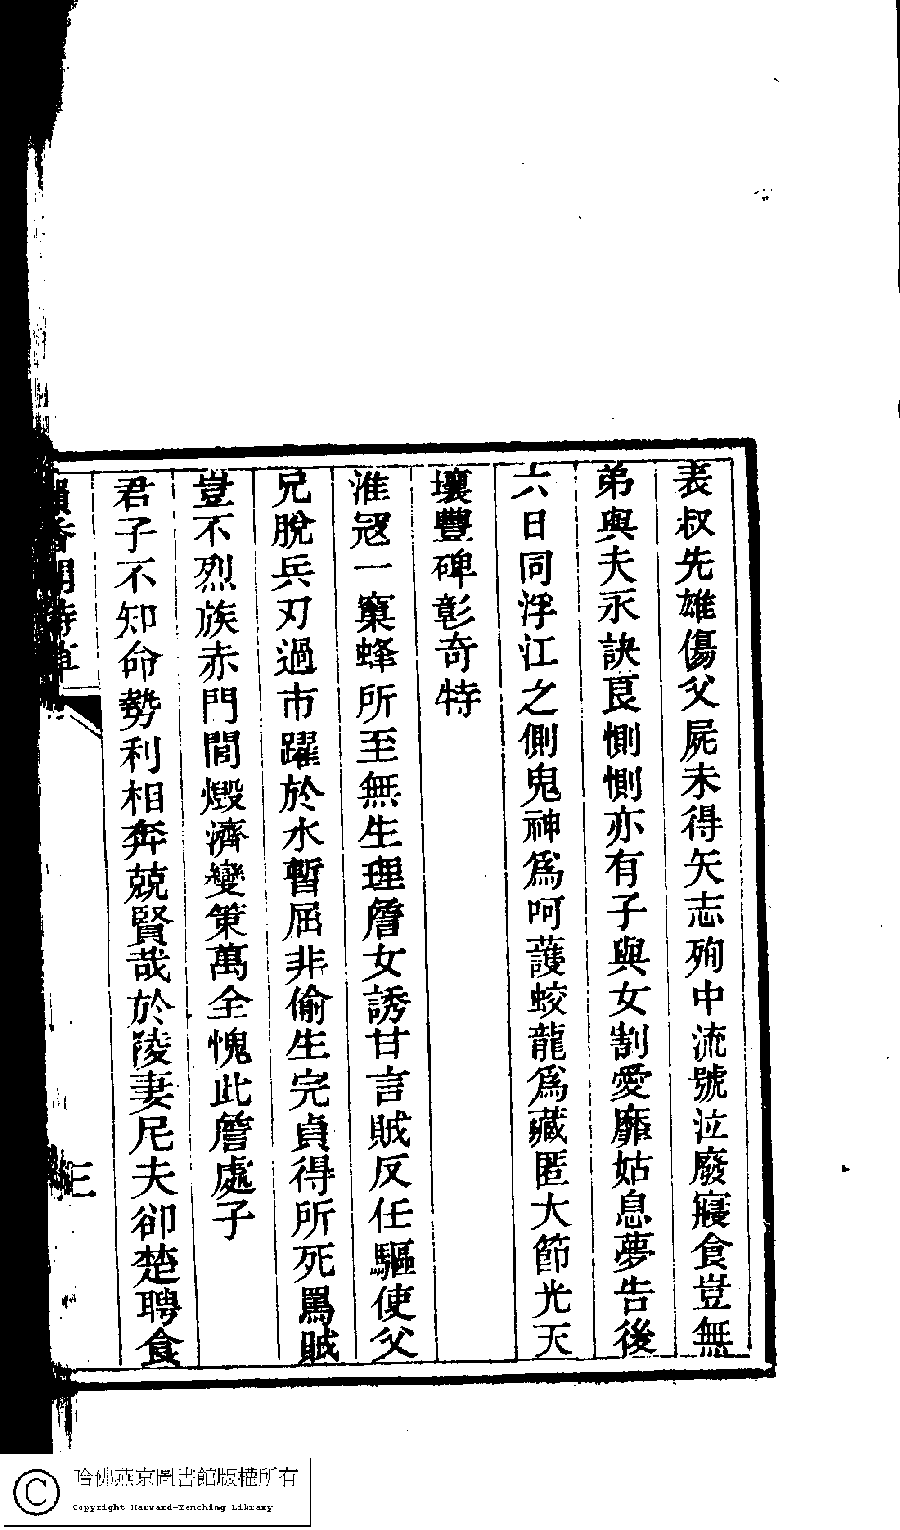 表叔先雄傷父屍未得矢志殉中流號泣廢寢食豈無
弟與夫永訣良惻惻亦有子與女割愛靡姑息夢告後
六日同浮江之側鬼神爲呵護蛟龍爲藏匿大節光天
壤豐碑彰奇特
淮冦一窠蜂所至無生理詹女誘甘言賊反任驅使父
兄脫兵刃過市躍於水暫屈非偷生完貞得所死罵賊
豈不烈族赤門閭燬濟變策萬全愧此詹處子
君子不知命勢利相奔競賢哉於陵妻尼夫卻楚聘食
三
哈佛燕京圖書館版權所有
Copyright Harvard-Yenching Library